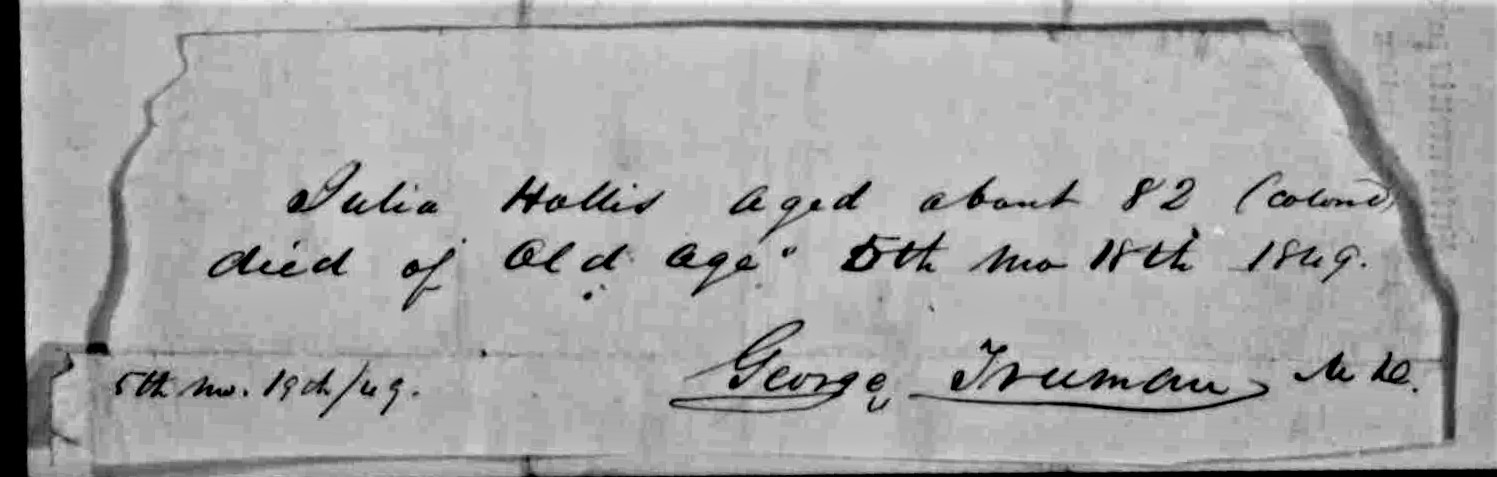 Julia Hollis aged about 82 (colored)
died of Old Age 5th mo 18th 1849.
George Truman M.D.
5th mo. 19th/49.